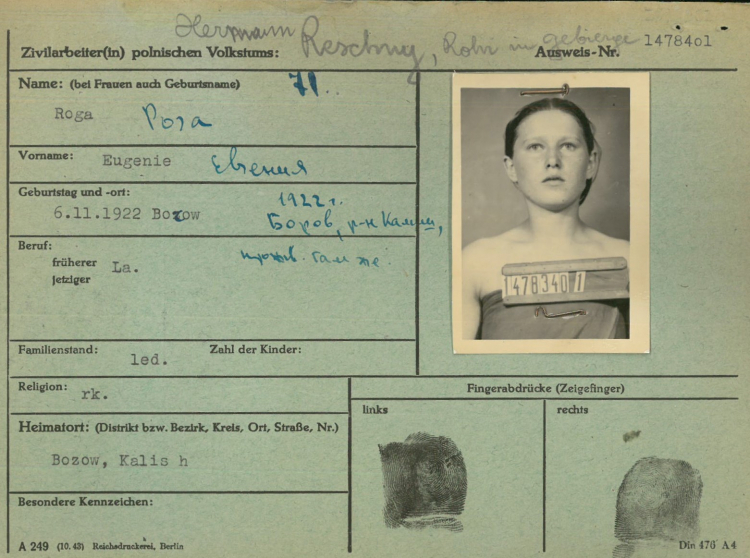 Hermann Reschny, Rohr in gebierge
Zivilarbeiter(in) polnischen Volkstums:
Ausweis-Nr. 1478401
Name: (bei Frauen auch Geburtsname)
71..
Roga
Рога
Vorname: Eugenie
Евгения
Geburtstag und -ort:
6.11.1922 Bozow
1922 г.
Боров, р-н Калиш,
прожив. там же.
Beruf:
früherer
jetziger
La.
1478340 1
Familienstand: led.
Zahl der Kinder:
Religion: rk.
Heimatort: (Distrikt bzw. Bezirk, Kreis, Ort, Straße, Nr.)
Bozow, Kalis h
Besondere Kennzeichen:
Fingerabdrücke (Zeigefinger)
links
rechts
A 249 (10. 43) Reichsdruckerei, Berlin
Din 476 A4